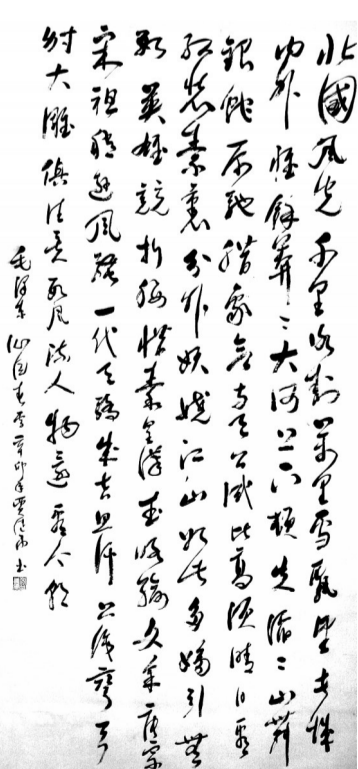 北國風光千里冰封萬里雪飄望長城
內外惟餘莽〻大河上下頓失滔〻山舞
銀蛇原馳腊象欲與天公試比高須晴日看
紅裝素裹分外妖嬈江山如此多嬌引無
數英雄競折腰惜秦皇漢武略輸文采唐宗
宋祖稍遜風騷一代天驕成吉思汗只識彎弓
射大雕俱往矣數風流人物還看今朝
毛澤東沁園春雪辛卯年賈书